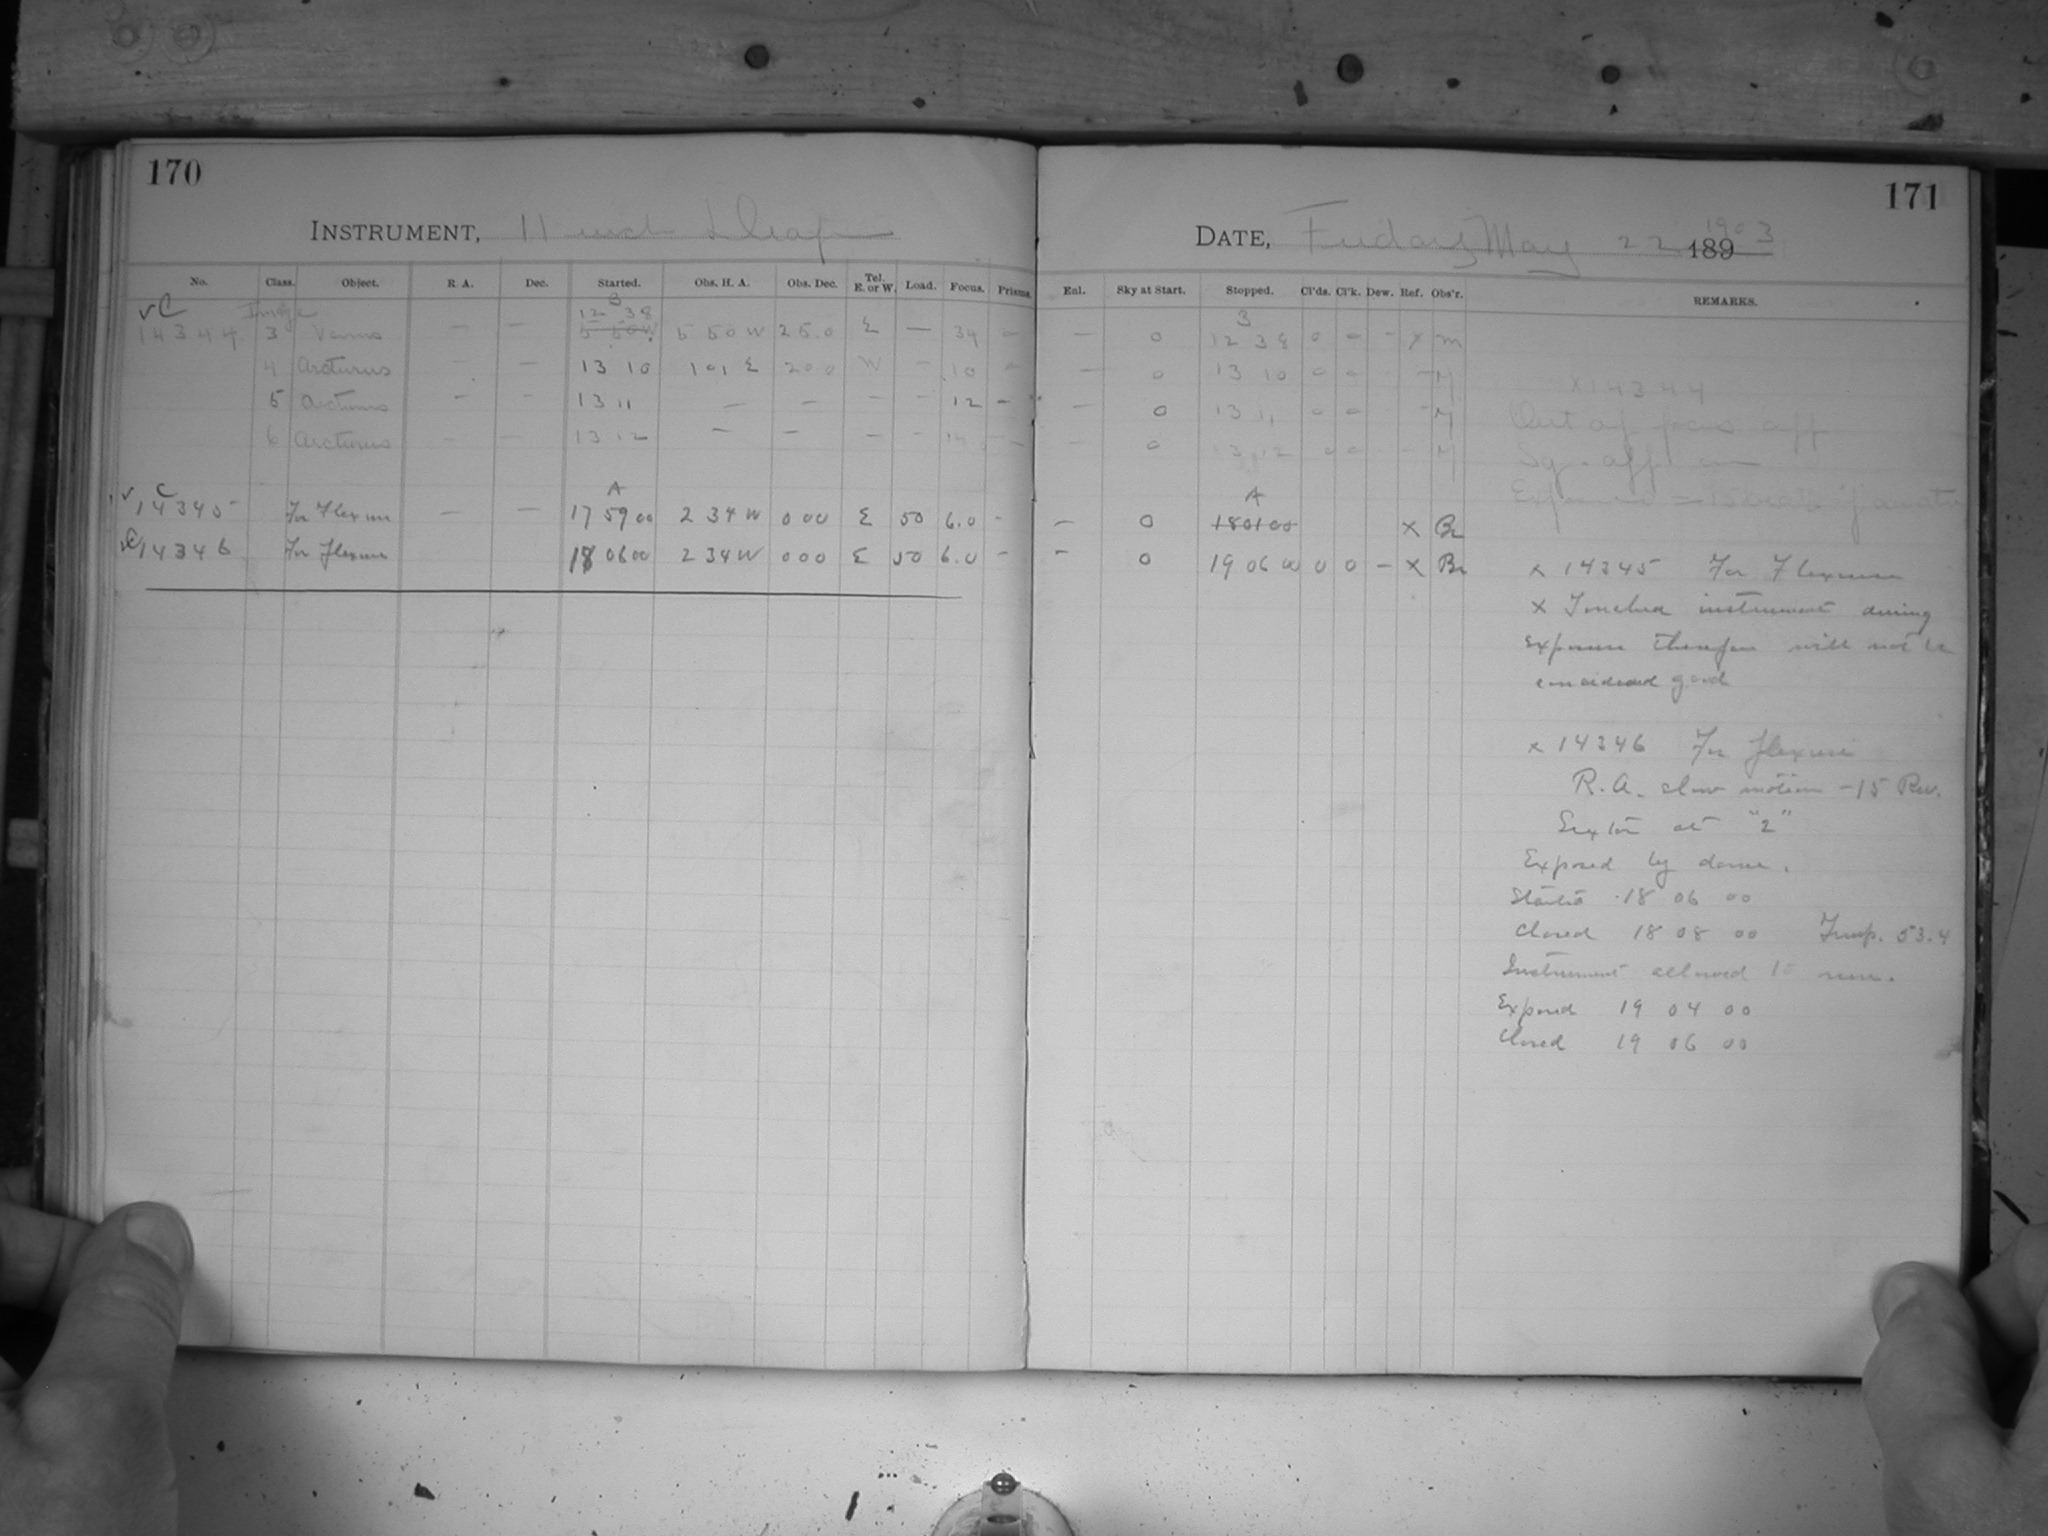 170
INSTRUMENT, 11 inch Draper
No. Class. Object. R. A. Dec. Started. Obs. H. A. Obs. Dec. Tel. E. or W. Load. Focus. Prisms.
v C Image B
12 38
14344 3 Venus — — 5 50 W 5 50 W 25.0 E — 34 —
4 Arcturus — — 13 10 1 01 E 20 0 W — 10 —
5 Arcturus — — 13 11 — — — — 12 —
6 Arcturus — — 13 12 — — — — 14 —
v C A
14345 For Flexure — — 17 59 00 2 34 W 0 00 E 50 6.0 —
v C 14346 For Flexure 18 06 00 2 34 W 0 00 E 50 6.0 —
171
DATE, Friday May 22 189 1903
Enl. Sky at Start. Stopped. Cl'ds. Cl'k. Dew. Ref. Obs'r. REMARKS.
B
— 0 12 38 0 — - x M
— 0 13 10 0 0 - M
— 0 13 11 0 0 - M
— 0 13 12 0 0 - M
x 14344
Out of focus
Exposure
A
— 0 18 01 00 x Br
— 0 19 06 00 0 0 — x Br
x 14345 For Flexure
x Touched instrument during
Exposure therefore will not be
considered good
x 14346 For flexure
R.A. slow motion -15 Rev.
at "2"
Exposed by dome.
Started 18 06 00
Closed 18 08 00 Temp. 53.4
Instrument allowed to run.
Exposed 19 04 00
Closed 19 06 00